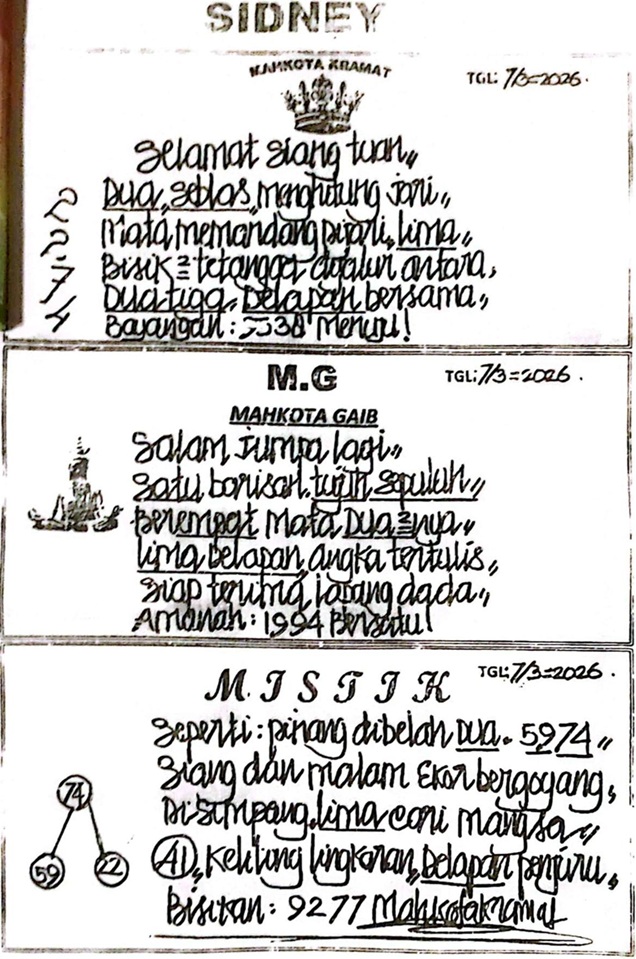 SIDNEY
MAHKOTA KRAMAT
TGL: 7/3=2026.
Selamat siang tuan,,
Dua, seblas, menghitung jari,,
Mata memandang pijari, lima,,
Bisik ² tetangga dialun antara,
Dua tiga, Delapan bersama,,
Bayangan: 5538 Menyu!
M.G
TGL: 7/3=2026.
MAHKOTA GAIB
Salam jumpa lagi,,
Satu barisan, tujuh sepuluh,,
Berempat mata Dua, ²nya,,
Lima Delapan, angka tertulis,,
Siap terima, latang dada,,
Amanah: 1994 Bersatu!
MISTIK
TGL: 7/3=2026.
Seperti: pinang dibelah Dua. 5974,,
Siang dan malam Ekor bergoyang,
Di Simpang, lima cari mangsa,,
41, Keliling lingkaran, Delapan penjuru,,
Bisikan: 9277 Mahkotakramat
74
59 22